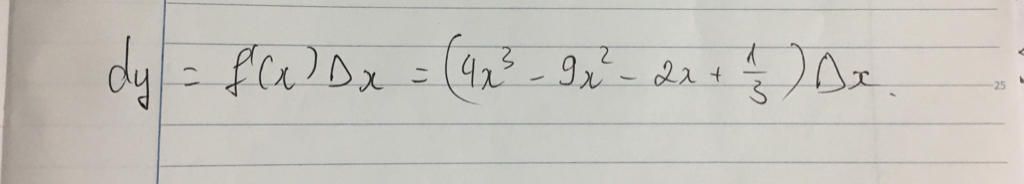 dy = f'(x) Δx = (4x³ - 9x² - 2x + 1/3) Δx.
25